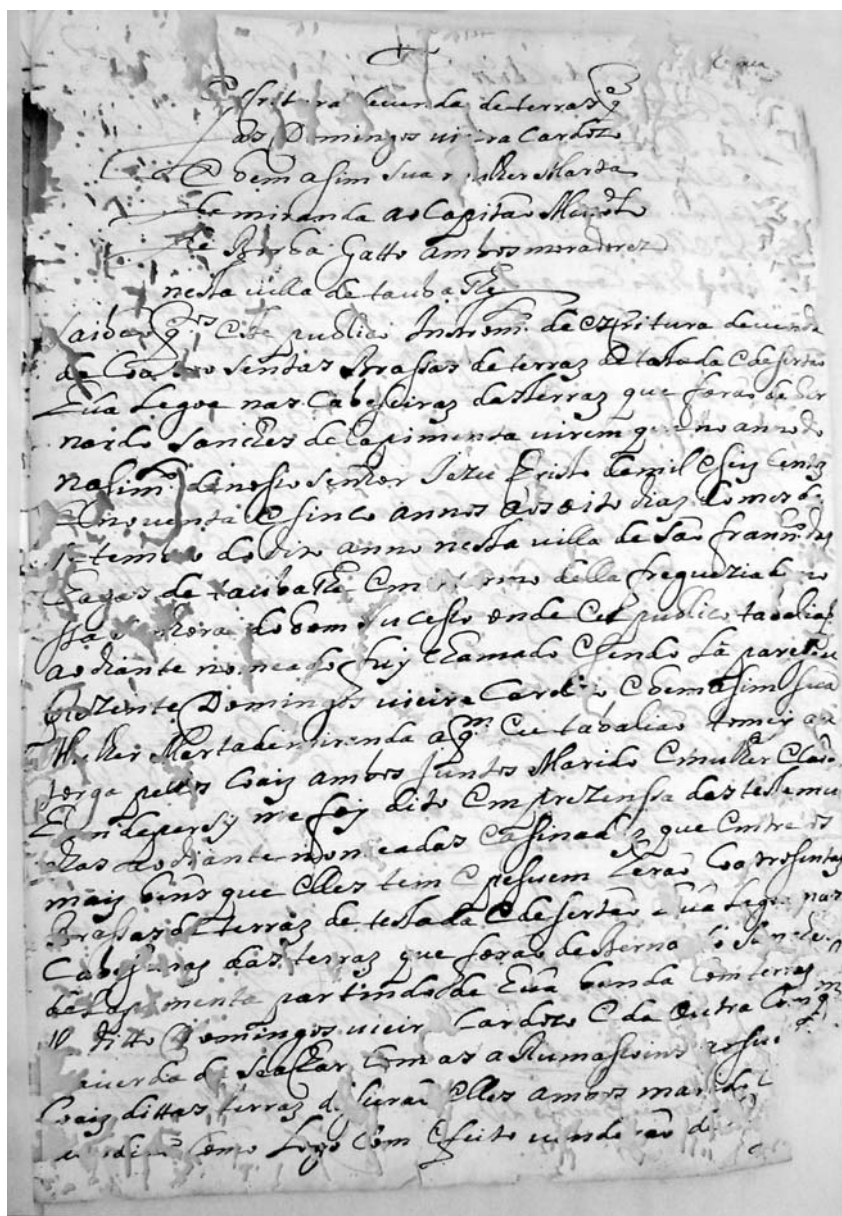 Escritura de uenda de terras q̃
fas Domingos uieira Cardozo
E bem asim sua mulher Marta
de miranda ao Capitão Man.el
de Borba Gatto ambos moradores
nesta uilla de taubathe
Saibão q.tos este publico Instrom.to de escritura de uenda
de Coatro sentas Brassas de terras de testada E de sertão
hũa Legoa nas Cabeseiras das terras que forão de Ber
nardo Sanches de la pimenta uirem que no anno do
nasim.to de nosso senhor Jezu Cristo de mil E seis centos
E nouenta E sinco annos aos oito dias do mes de
setembro do dito anno nesta uilla de São fran.co das
Chagas de taubathe Em termo della freguezia de no
ssa senhora do bom sucesso onde Eu publico tabalião
ao diante nomeado fuy chamado E sendo lá pareseu
prezente Domingos uieira Cardozo E bem asim sua
Mulher Marta de miranda a q.m Eu tabalião tomei a ou
torga pellos Coais ambos juntos Marido E mulher E Cada
hum de per sy me foy dito Em prezenssa das testemu
nhas ao diante nomeadas E asinadas que Entre os
mais bens que Elles tem E pesuem herão Coatrosentas
Brassas de terras de testada E de sertão hũa Legoa nas
Cabeseiras das terras que forão de Bernardo Sanches
de La pimenta partindo de hũa banda Com terras
do ditto Domingos uieira Cardozo E da outra Com q.m
deuerda de se achar Com as
Coais dittas terras diserão Elles ambos marido E
Como Logo Com Efeito uenderão